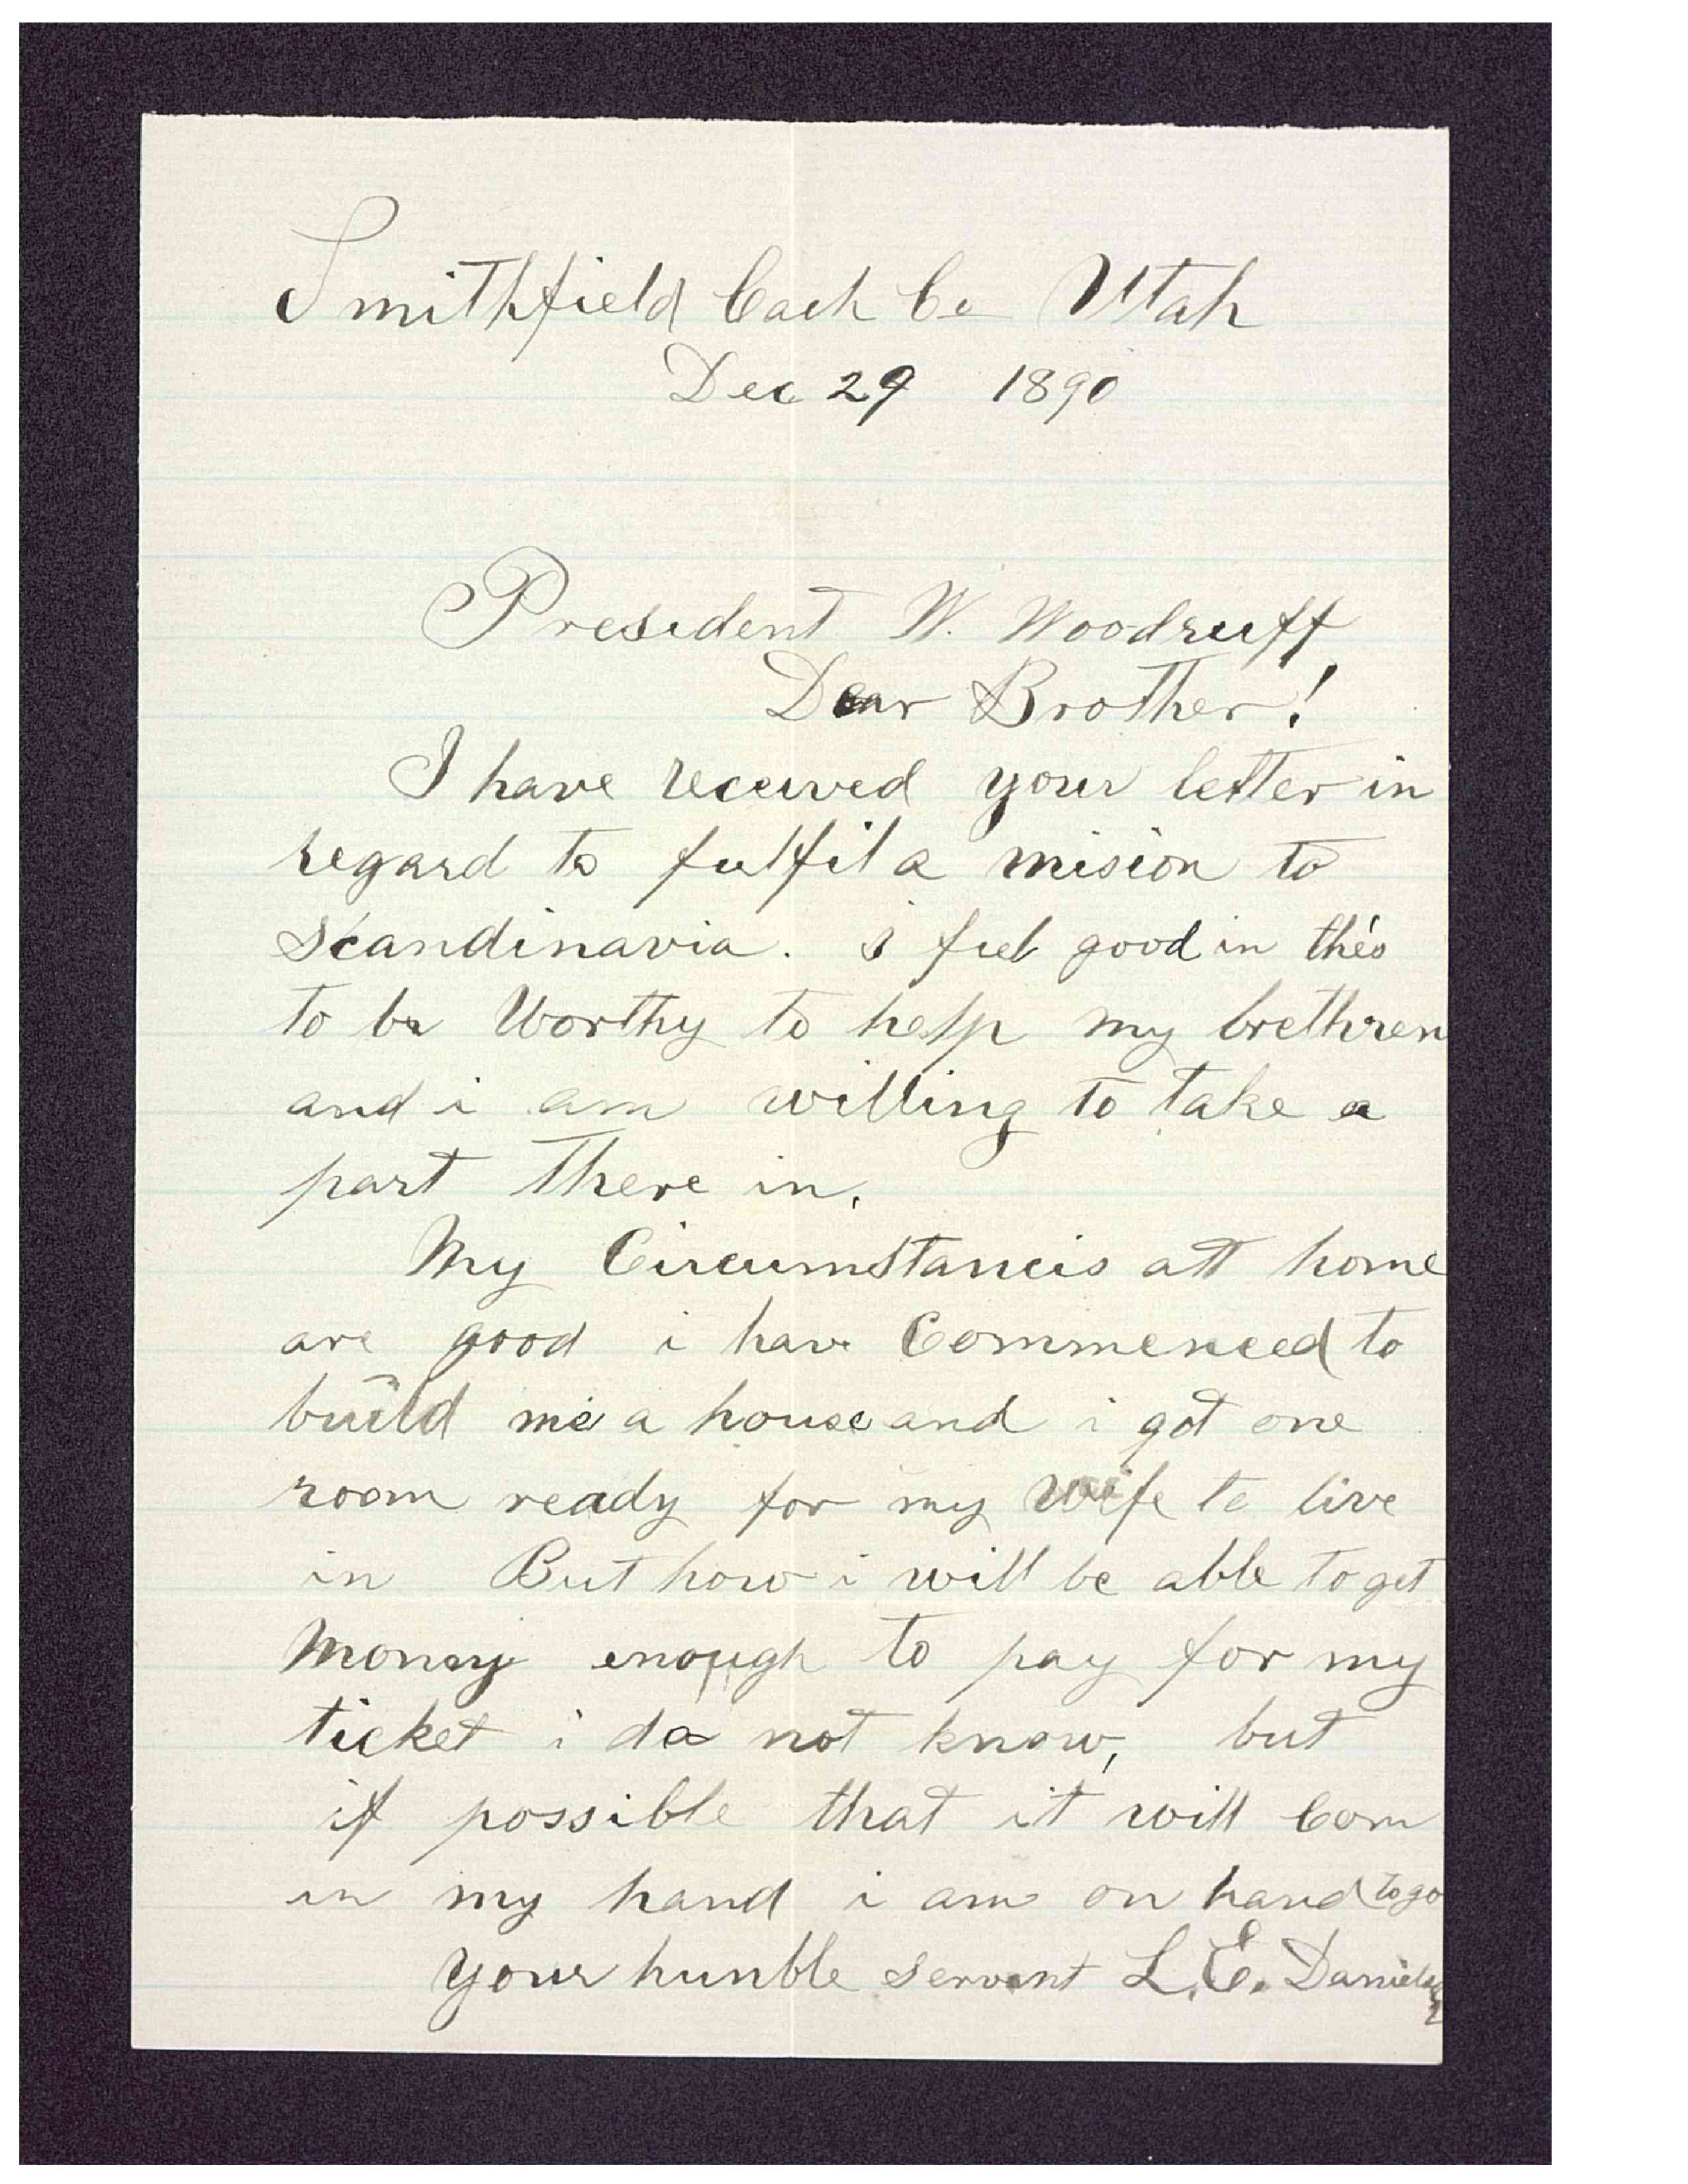 Smithfield Cach Co Utah
Dec 29 1890
President W. Woodruff
Dear Brother!
I have received your letter in
regard to fulfil a mision to
Scandinavia. i feel good in this
to be Worthy to help my brethren
and i am willing to take a
part there in.
My Circumstancis att home
are good i have Commenced to
build me a house and i got one
room ready for my wife to live
in But how i will be able to get
Money enough to pay for my
ticket i do not know, but
if possible that it will Com
in my hand i am on hand to go
your hunble servant L. E.